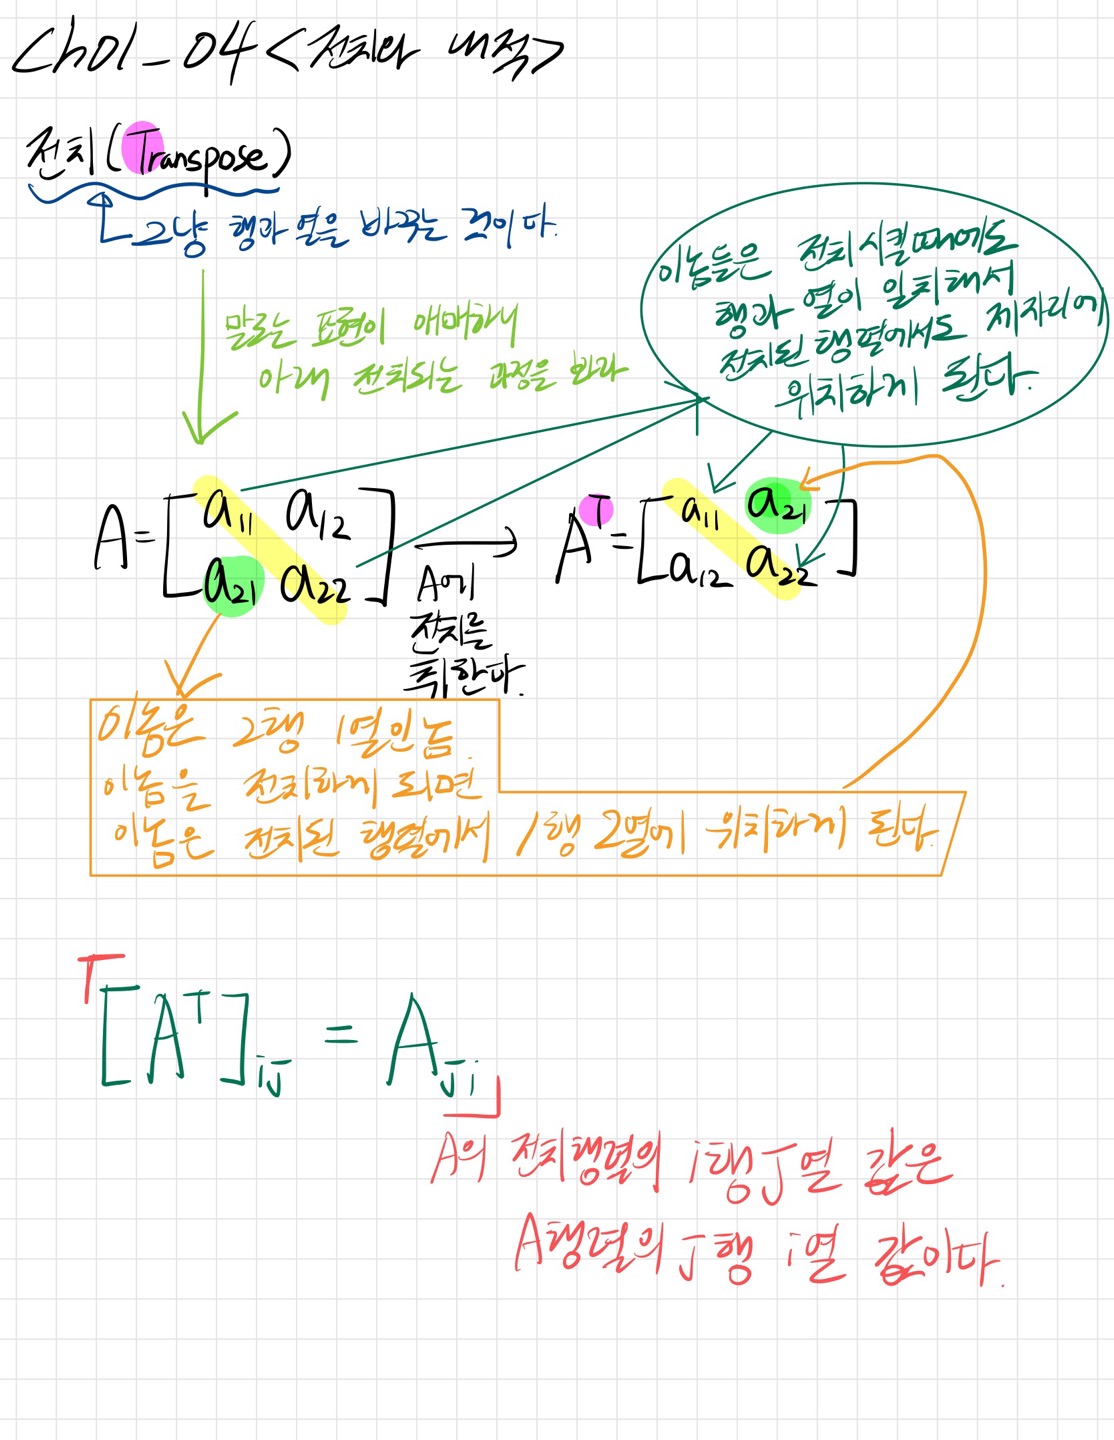 Ch01_04 <전치와 내적>
전치(Transpose)
그냥 행과 열을 바꾸는 것이다.
말로는 표현이 애매하니
아래 전치되는 과정을 봐라
이놈들은 전치시킬때에도
행과 열이 일치해서
전치된 행렬에서도 제자리에
위치하게 된다.
A = [a₁₁ a₁₂
a₂₁ a₂₂]
A에
전치를
취한다.
Aᵀ = [a₁₁ a₂₁
a₁₂ a₂₂]
이놈은 2행 1열인놈.
이놈을 전치하게 되면
이놈은 전치된 행렬에서 1행 2열에 위치하게 된다.
[Aᵀ]ᵢⱼ = Aⱼᵢ
A의 전치행렬의 i행J열 값은
A행렬의 J행 i열 값이다.